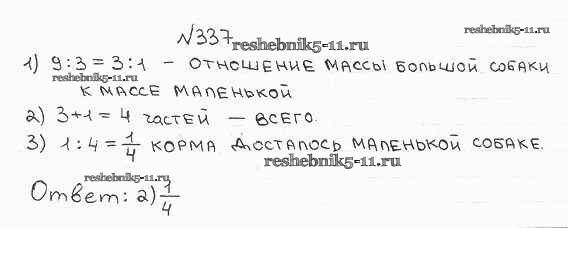 №337
reshebnik5-11.ru
reshebnik5-11.ru
1) 9:3=3:1 – ОТНОШЕНИЕ МАССЫ БОЛЬШОЙ СОБАКИ
reshebnik5-11.ru
К МАССЕ МАЛЕНЬКОЙ
2) 3+1=4 ЧАСТЕЙ – ВСЕГО.
3) 1:4=1/4 КОРМА ДОСТАЛОСЬ МАЛЕНЬКОЙ СОБАКЕ.
reshebnik5-11.ru
reshebnik5-11.ru
Ответ: 2) 1/4